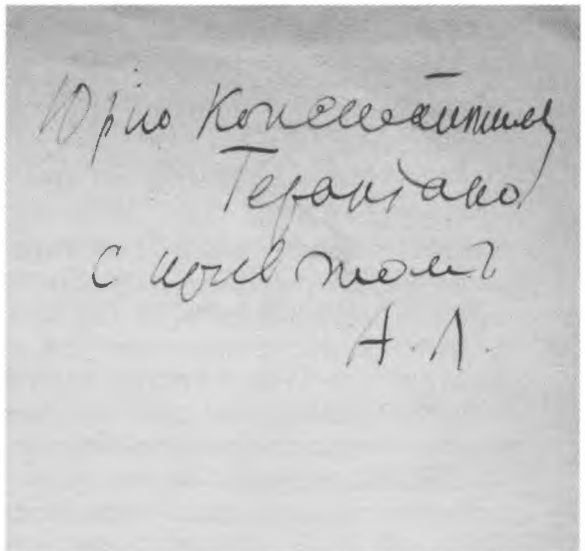 Юрію Константиновичу
Терапіано
с приветомъ
А. Л.